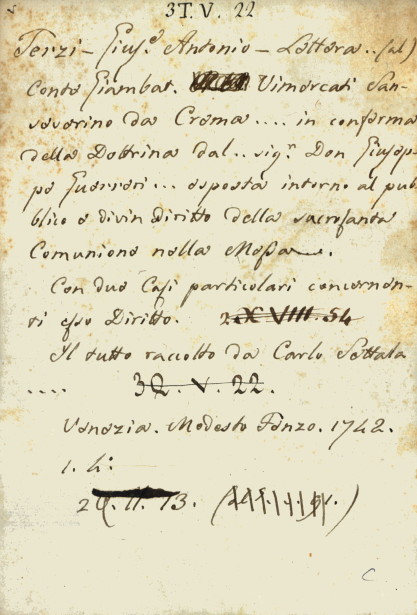 3T. V. 22
Terzi - Gius.e Antonio - Lettera .. (al)
Conte Giambat. Vimercati San-
severino da Crema .... in conferma
della Dottrina dal .. sig.r Don Giusep-
pe Guerreri ... esposta intorno al pub-
blico e divin Diritto della sacrosanta
Comunione nella Messa.
Con due Casi particolari concernen-
ti esso Diritto. 2. X VIII. 54
Il tutto raccolto da Carlo Settala
.... 3Q. V. 22.
Venezia. Modesto Fenzo. 1742.
1. 4:
2 11. 13.
C